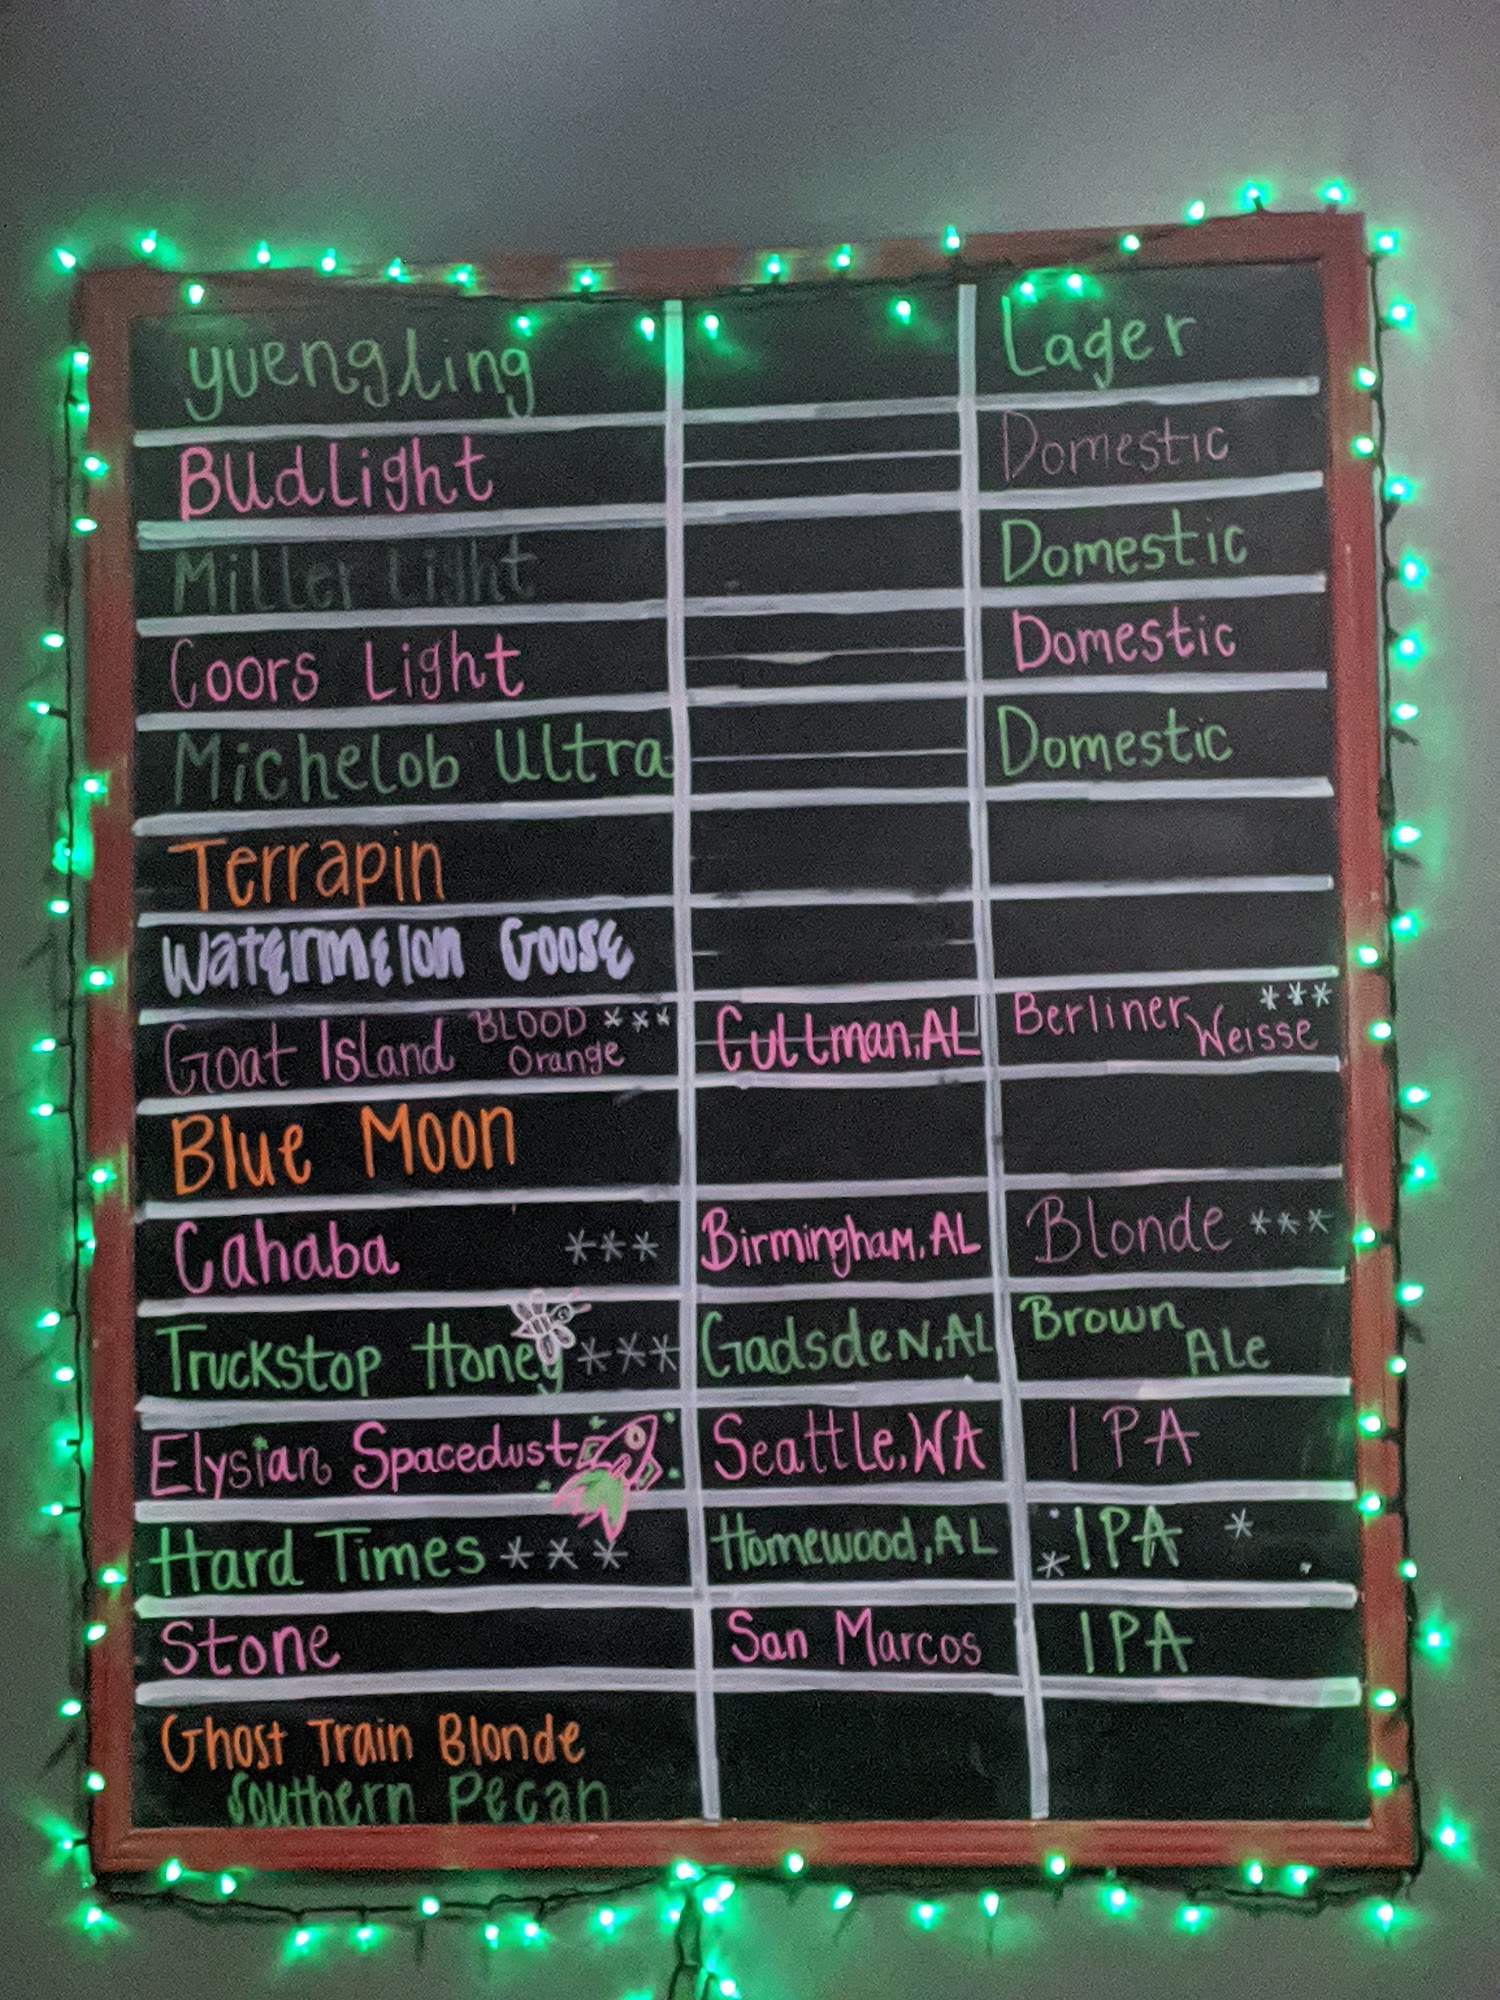 yuengling Lager
BUdLight Domestic
Miller Light Domestic
Coors Light Domestic
Michelob Ultra Domestic
Terrapin
Watermelon Goose
Goat Island BLOOD Orange *** Cullman, AL Berliner Weisse ***
Blue Moon
Cahaba *** Birmingham, AL Blonde ***
Truckstop Honey *** Gadsden, AL Brown Ale
Elysian Spacedust Seattle, WA IPA
Hard Times *** Homewood, AL * IPA *
Stone San Marcos IPA
Ghost Train Blonde
Southern Pecan